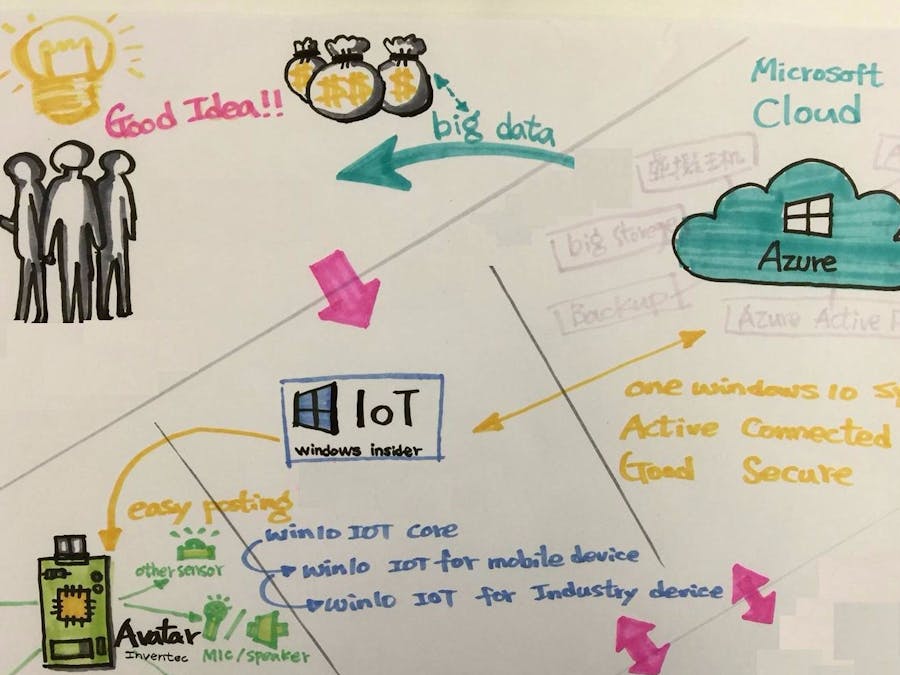 Good Idea!!
$
$$
$
big data
Microsoft
Cloud
虚拟主机
big storage
Backup
Azure
Azure Active
one windows 10
Active Connected
Good Secure
IoT
windows insider
easy posting
win10 IOT core
win10 IOT for mobile device
win10 IOT for Industry device
other sensor
Avatar
Inventec
Mic/speaker